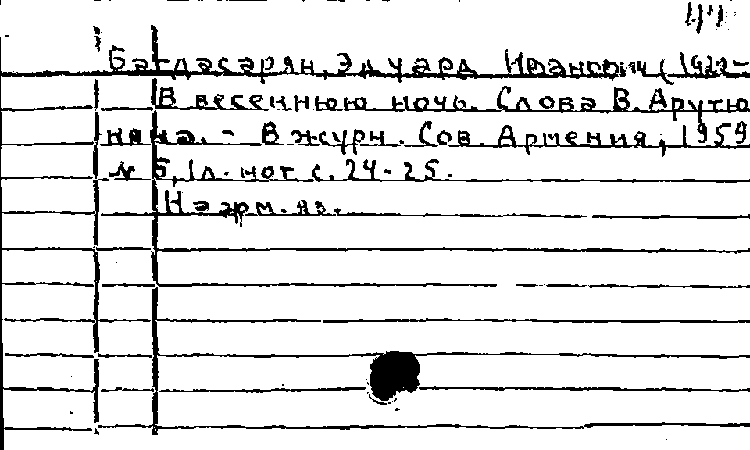 44
Багдасарян, Эдуард Иванович (1922-
В весеннюю ночь. Слова В. Арутю
няна. - В журн. Сов. Армения, 1959
№ 5, 1л. нот с. 24-25.
На арм. яз.